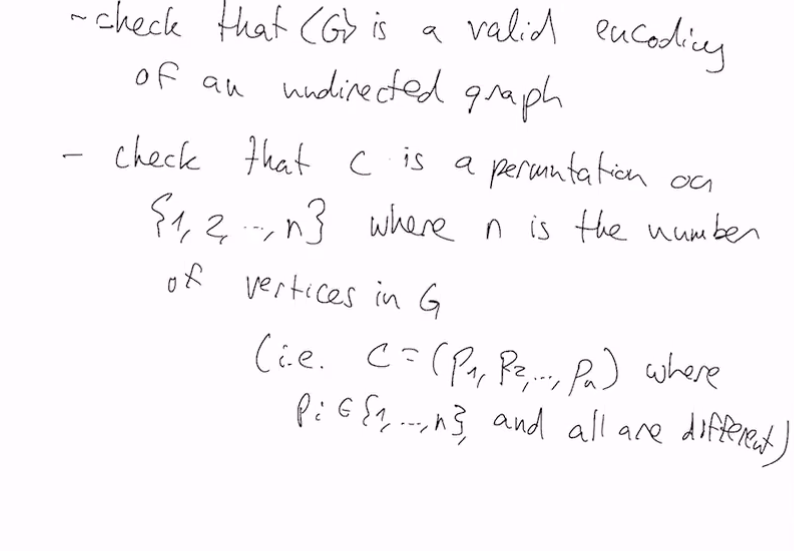 - check that ⟨G⟩ is a valid encoding
of an undirected graph
- check that C is a permutation on
{1, 2, ..., n} where n is the number
of vertices in G
(i.e. C = (p₁, p₂, ..., pₙ) where
pᵢ ∈ {1, ..., n}, and all are different)